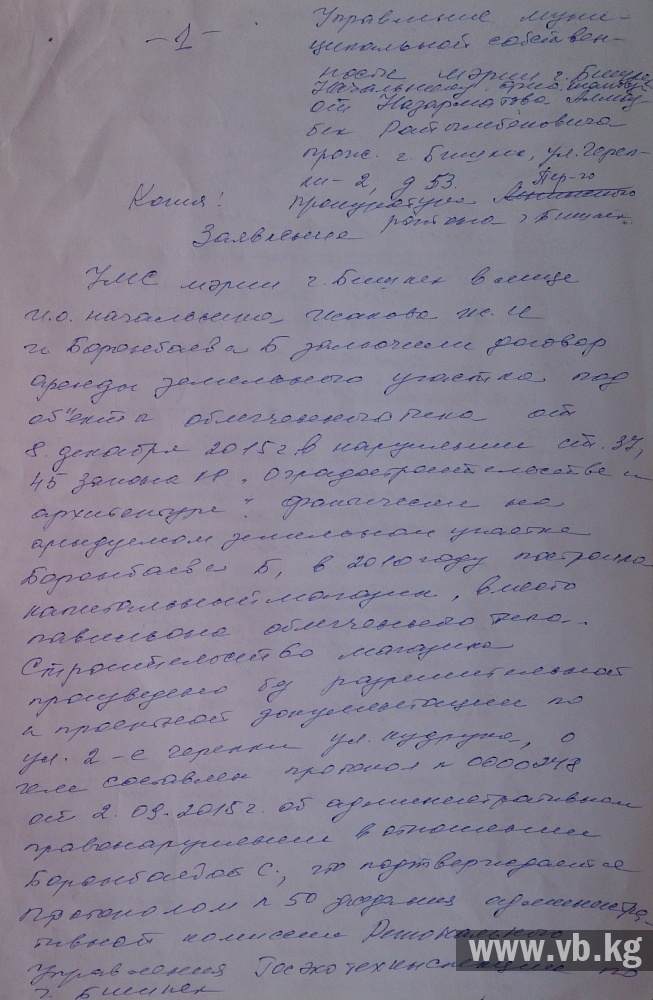 - 1 -
Управление муни-
ципальной собствен-
ности мэрии г. Бишкек
Начальнику
от Назарматова Алмаз-
бек Ратымбековича
прож. г. Бишкек, ул. Череп-
ки-2, д 53. Пер-го
Копия! Прокуратура Ленинского
Заявление района г Бишкек.
УМС мэрии г. Бишкек в лице
и.о. начальника Исакова Ж. И
и Баронбаева Б заключили договор
аренды земельного участка под
объекта облегченного типа от
8 декабря 2015 г. в нарушении ст. 37,
45 Закона КР „О градостроительстве и
архитектуре". Фактически на
арендуемом земельном участке
Баронбаева Б, в 2010 году построила
капитальный магазин, вместо
павильона облегченного типа.
Строительство магазина
произведено без разрешительной
и проектной документации по
ул. 2-е Черепки ул. Кудрука, о
чем составлен протокол n 0600248
от 2.09.2015 г. об административном
правонарушении в отношении
Баронбаевой С, что подтверждается
протоколом n 50 заседания администра-
тивной комиссии Регионального
Управления Госэкотехинспекции по
г. Бишкек
www.vb.kg